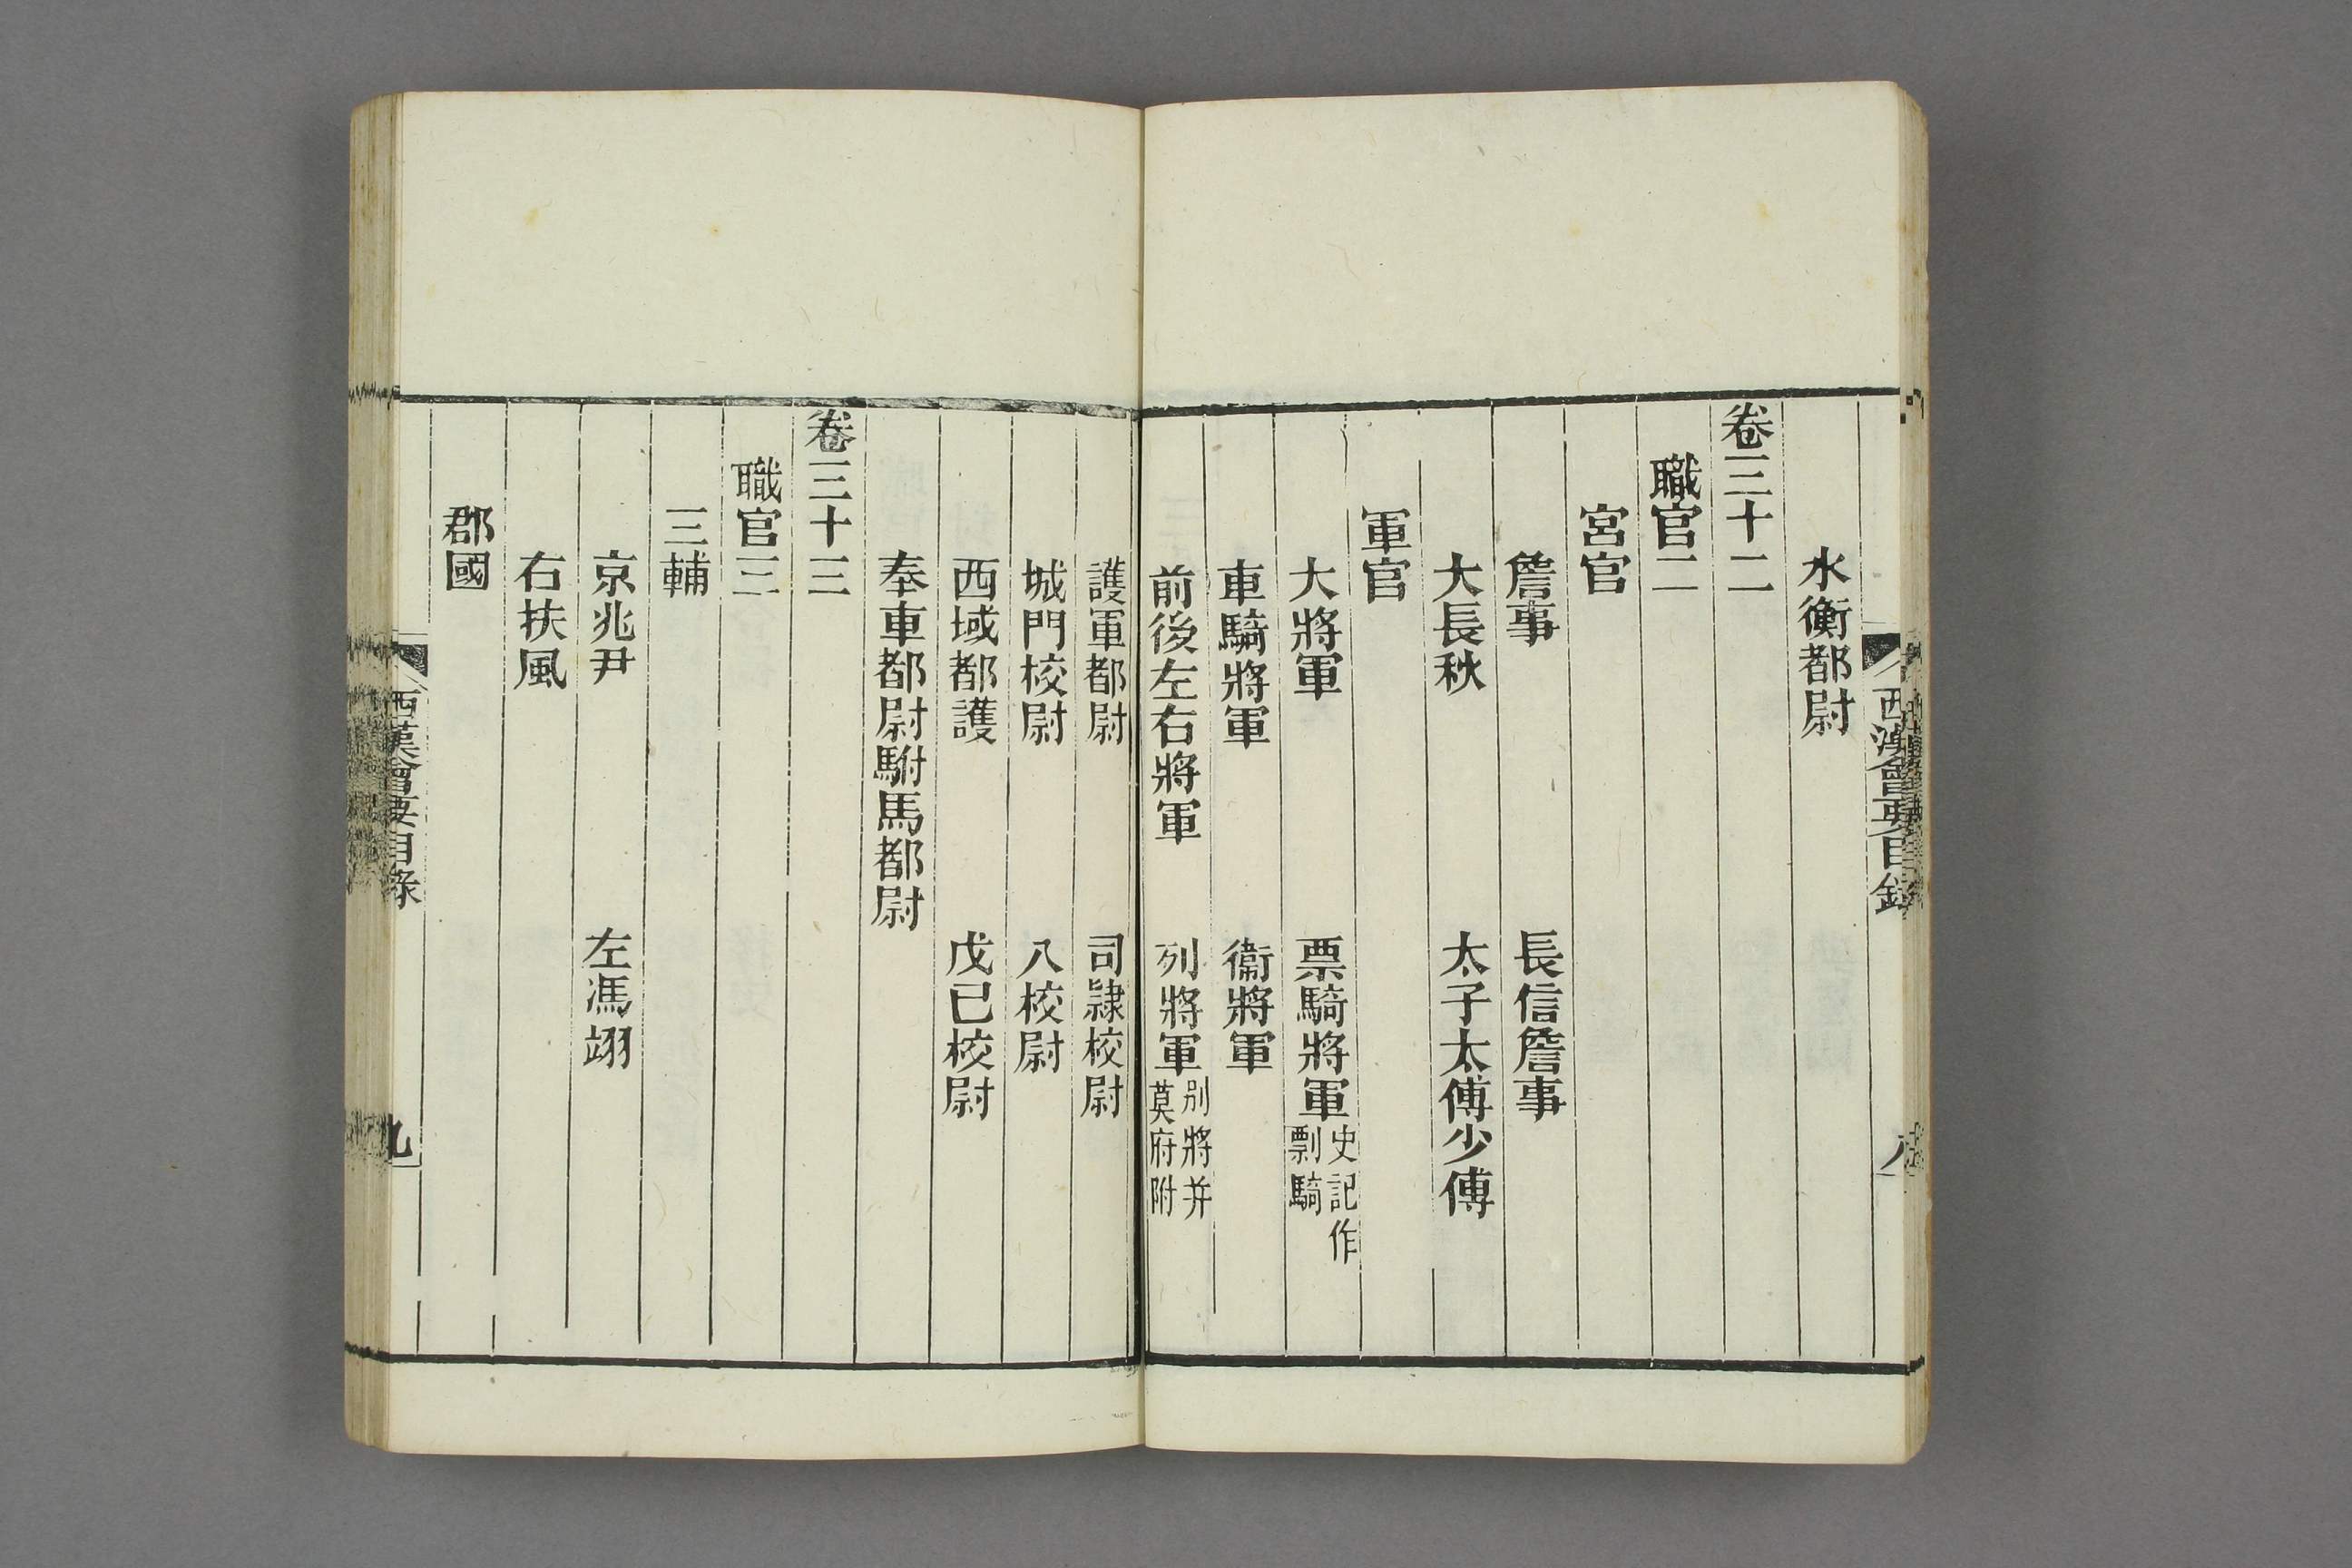 西漢會要目錄
八
水衡都尉
卷三十二
職官二
宮官
詹事 長信詹事
大長秋 太子太傅少傅
軍官
大將軍 票騎將軍 史記作
剽騎
車騎將軍 衞將軍
前後左右將軍 列將軍 别將并
莫府附
護軍都尉 司隸校尉
城門校尉 八校尉
西域都護 戊已校尉
奉車都尉駙馬都尉
卷三十三
職官三
三輔
京兆尹 左馮翊
右扶風
郡國
西漢會要目錄
九